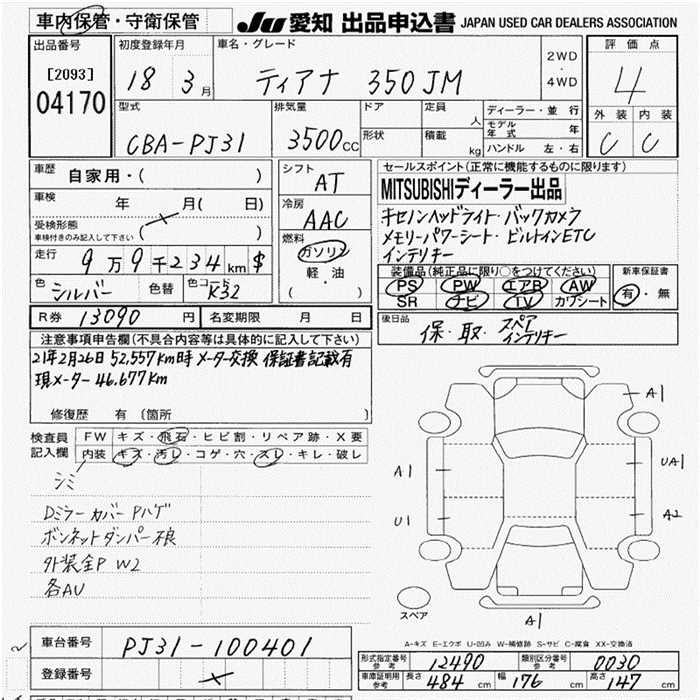 車内保管・守衛保管
JU 愛知 出品申込書 JAPAN USED CAR DEALERS ASSOCIATION
出品番号 初度登録年月 車名・グレード 2WD・4WD 評価点
[2093] 04170
18 3月 ティアナ 350JM 4
型式 排気量 ドア 定員 人 ディーラー・並行 外装 内装
CBA-PJ31 3500cc 形状 積載 kg モデル年式 年 C C
ハンドル 左・右
車歴 自家用・( ) シフト AT
セールスポイント(正常に機能するものに限ります)
MITSUBISHIディーラー出品
車検 年 月( 日) 冷房 AAC
キセノンヘッドライト・バックカメラ
受検形態
車検付きのみ記入して下さい
メモリーパワーシート・ビルトインETC
インテリキー
走行 9万9千234km $ 燃料 ガソリン 軽・油 ( )
装備品(純正品に限り○をつけてください) 新車保証書
PS PW エアB AW 有・無
SR ナビ TV カワシート
色 シルバー 色替 色コード K32
R券 13090円 名変期限 月 日
後日品 保・取・スペアインテリキー
注意事項申告欄(不具合内容等は具体的に記入して下さい)
21年2月26日 52,557km時 メーター交換 保証書記載有
現メーター 46,677km
修復歴 有 〔箇所 〕
検査員記入欄 FW キズ・飛石・ヒビ割・リペア跡・X要
内装 キズ・汚レ・コゲ・穴・スレ・キレ・破レ
シミ
Dミラーカバー Pハゲ
ボンネットダンパー不良
外装全P W2
各AU
A1
A1 UA1
U1 A2
スペア
A1
A-キズ E-エクボ U-凹み W-補修跡 S-サビ C-腐食 XX-交換済
車台番号 PJ31-100401
登録番号
形式指定番号 参考 12490 類別区分番号 参考 0030
車庫証明用 参考 長さ 484cm 幅 176cm 高さ 147cm